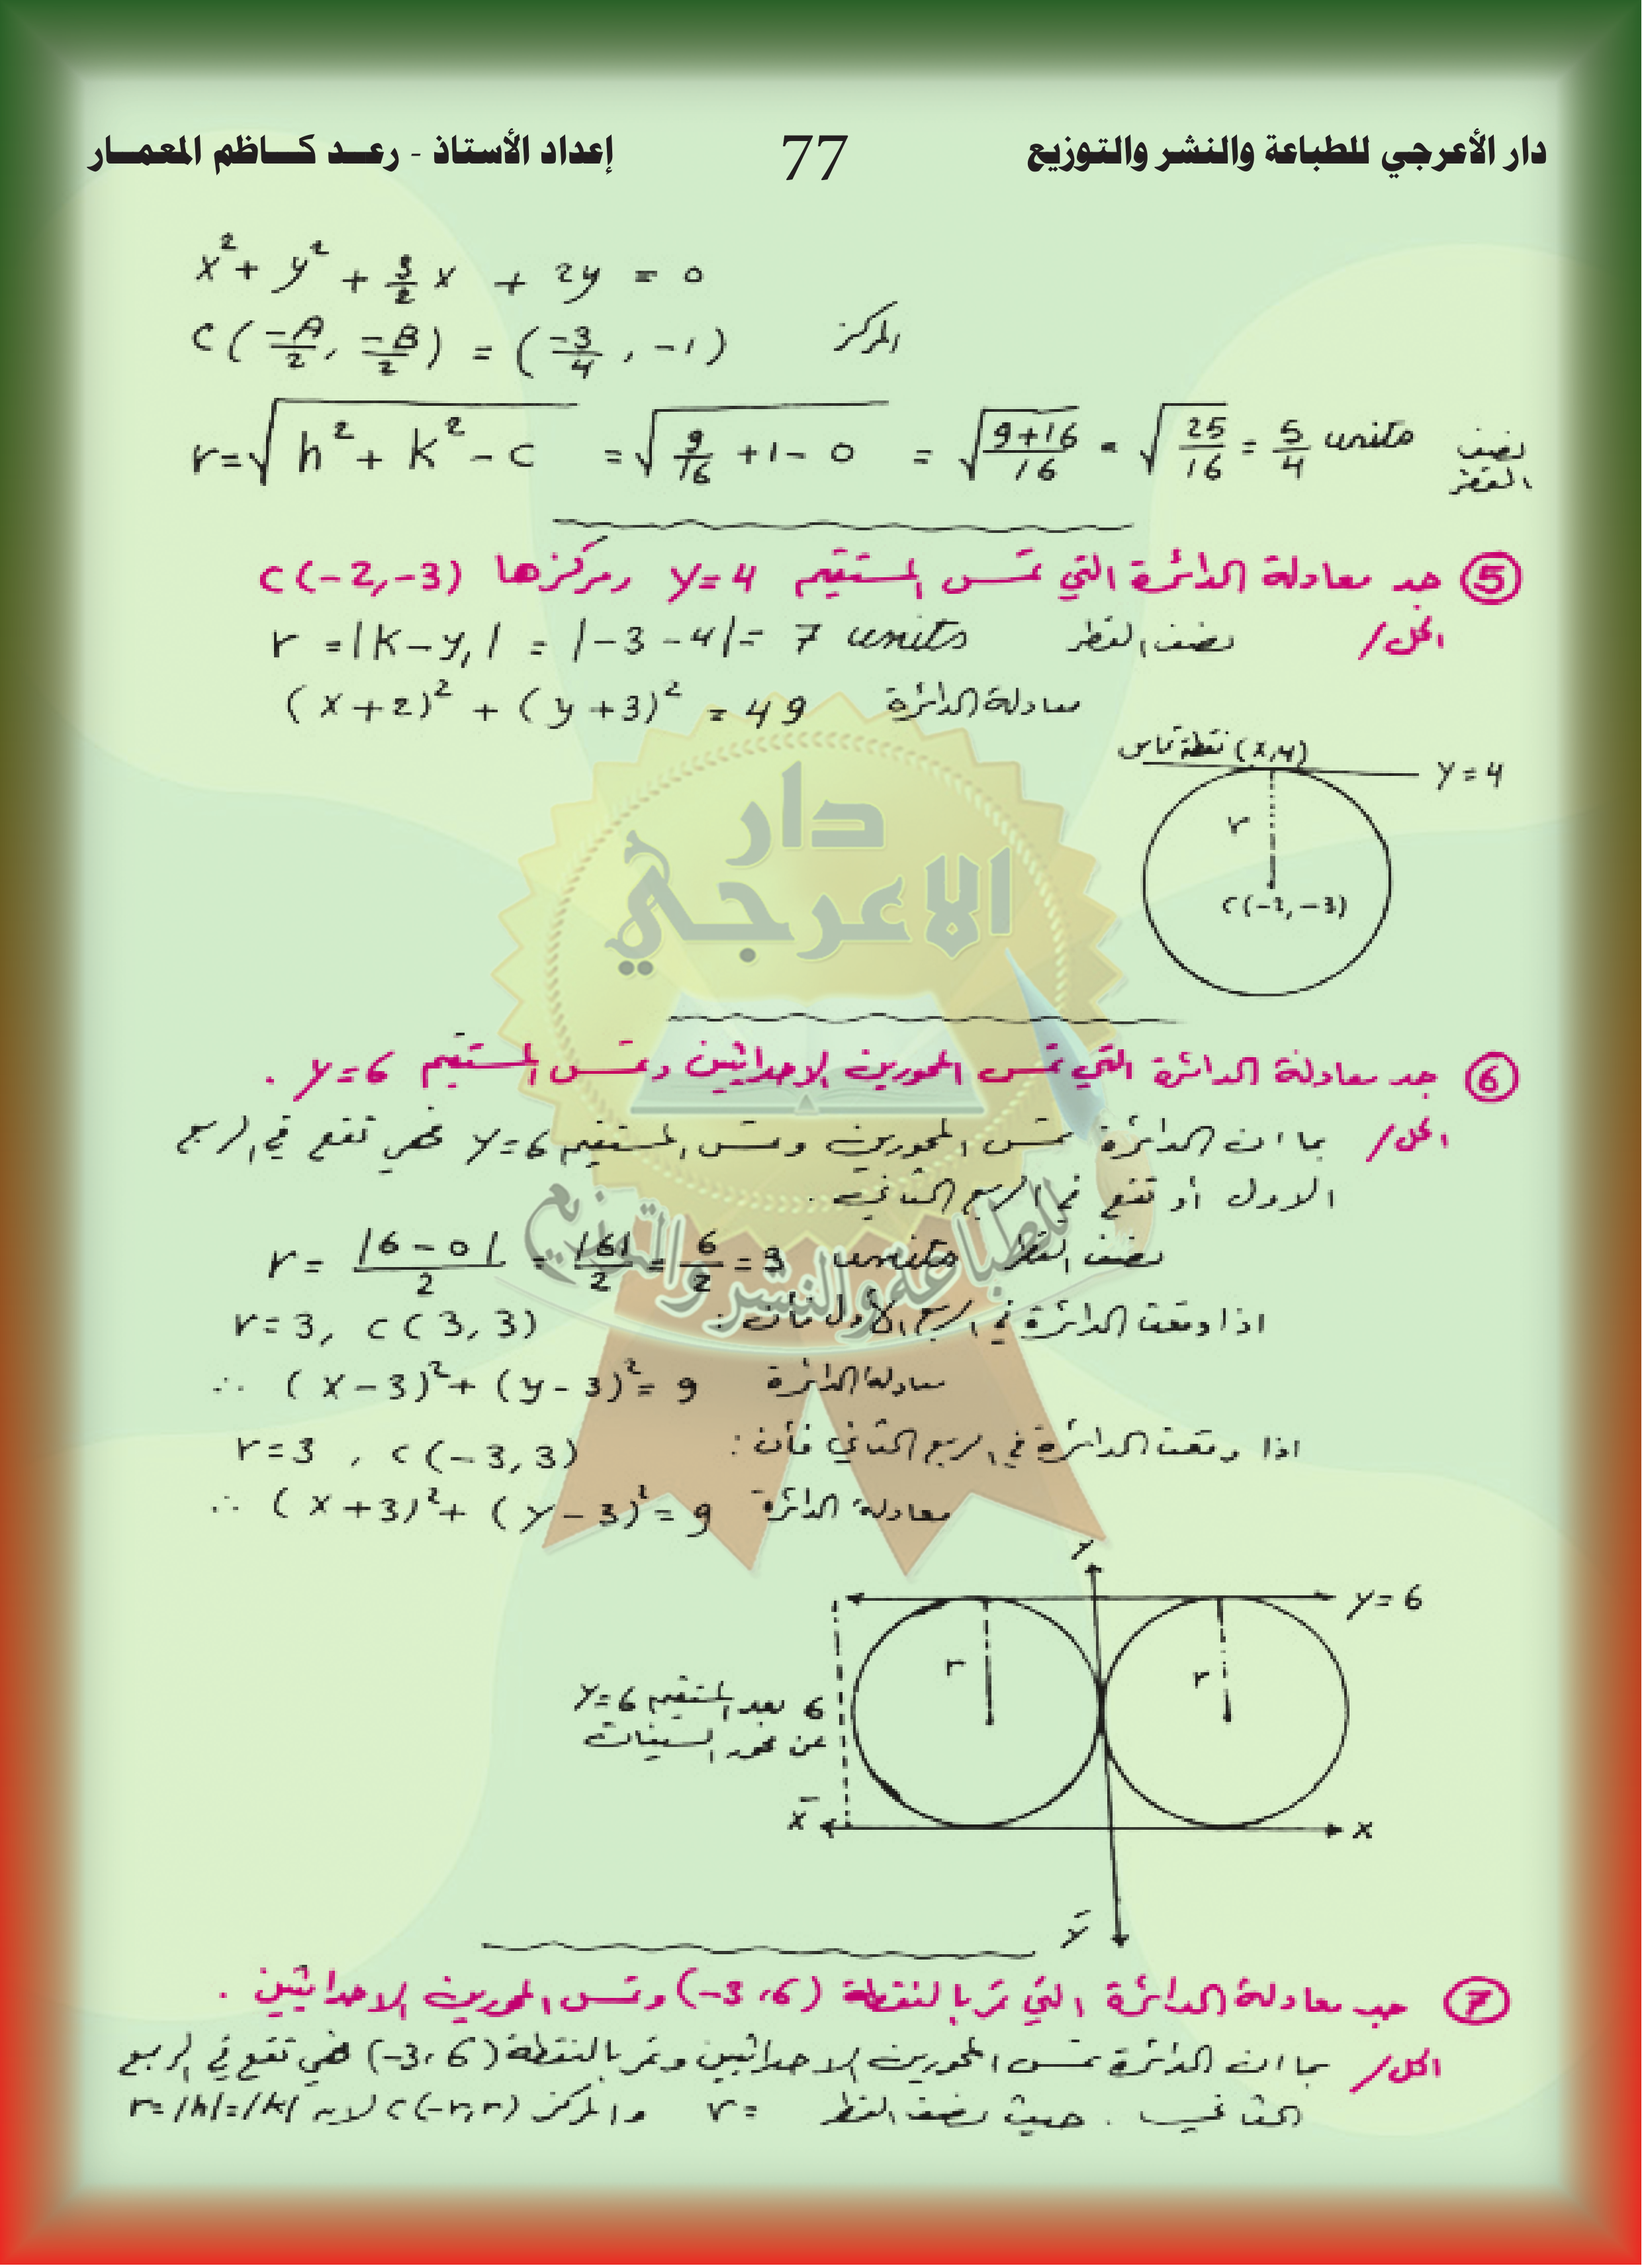 دار الأعرجي للطباعة والنشر والتوزيع 77 إعداد الأستاذ - رعد كاظم المعمار
x² + y² + 3/2 x + 2y = 0
C(-A/2, -B/2) = (-3/4, -1) المركز
r = √(h² + k² - c) = √(9/16 + 1 - 0) = √((9+16)/16) = √(25/16) = 5/4 units نصف القطر
⑤ جد معادلة الدائرة التي تمس المستقيم y=4 ومركزها C(-2,-3)
الحل/ نصف القطر r = |k-y₁| = |-3-4| = 7 units
معادلة الدائرة (x+2)² + (y+3)² = 49
نقطة تماس (x,4)
y=4
r
C(-2,-3)
⑥ جد معادلة الدائرة التي تمس المحورين الاحداثيين وتمس المستقيم y=6 .
الحل/ بما ان الدائرة تمس المحورين وتمس المستقيم y=6 فهي تقع في الربع
الاول أو تقع في الربع الثاني .
نصف القطر r = |6-0|/2 = |6|/2 = 6/2 = 3 units
اذا وقعت الدائرة في الربع الأول فأن : r=3, C(3,3)
معادلة الدائرة (x-3)² + (y-3)² = 9 ∴
اذا وقعت الدائرة في الربع الثاني فأن : r=3 , C(-3,3)
معادلة الدائرة (x+3)² + (y-3)² = 9 ∴
y
y=6
r
r
6 بعد المستقيم y=6
عن محور السينات
x̄
x
ȳ
⑦ جد معادلة الدائرة التي تمر بالنقطة (-3,6) وتمس المحورين الاحداثيين .
الحل/ بما ان الدائرة تمس المحورين الاحداثيين وتمر بالنقطة (-3,6) فهي تقع في الربع
الثاني . حيث نصف القطر r = والمركز C(-r,r) لانه r=|h|=|k|
دار
الاعرجي
للطباعة والنشر والتوزيع